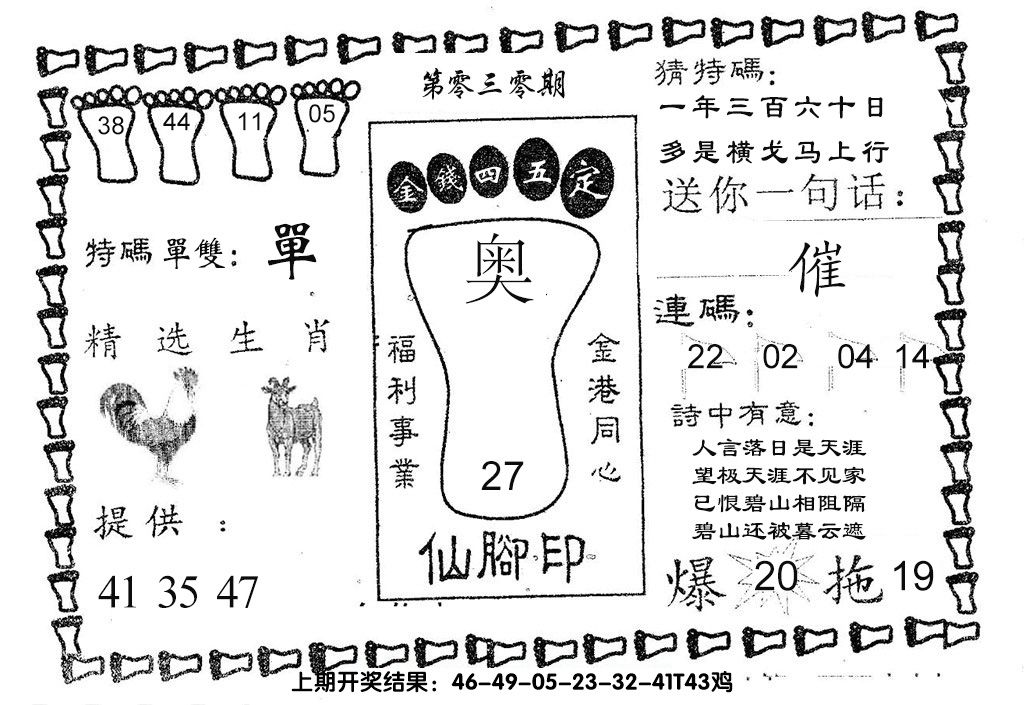 第零三零期
38 44 11 05
特碼 單雙: 單
精选生肖
提供 :
41 35 47
金錢四五定
奥
福利事業
金港同心
27
仙腳印
猜特碼:
一年三百六十日
多是横戈马上行
送你一句话:
催
連碼:
22 02 04 14
詩中有意:
人言落日是天涯
望极天涯不见家
已恨碧山相阻隔
碧山还被暮云遮
爆 20 拖 19
上期开奖结果：46-49-05-23-32-41T43鸡